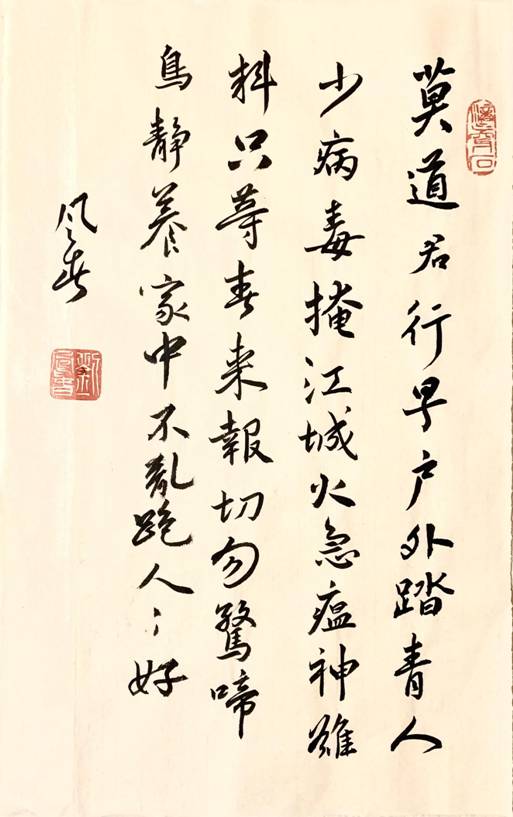 莫道君行早户外踏青人
少病毒掩江城火急瘟神難
料只等春来報切勿驚啼
鳥静養家中不亂跑人〻好